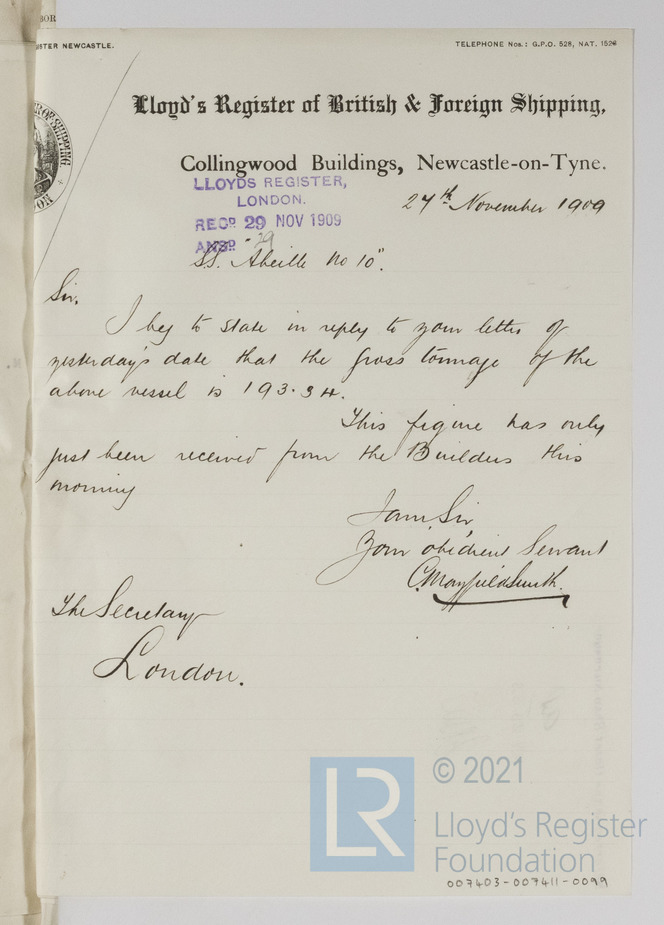 BOR
ISTER NEWCASTLE.
TELEPHONE Nos.: G.P.O. 528, NAT. 1526
Lloyd's Register of British & Foreign Shipping,
Collingwood Buildings, Newcastle-on-Tyne.
LLOYDS REGISTER,
LONDON.
RECD 29 NOV 1909
ANSD 29
27th November 1909
S.S. "Abeille No 10".
Sir,
I beg to state in reply to your letter of
yesterday's date that the gross tonnage of the
above vessel is 193.34.
This figure has only
just been received from the Builders this
morning
I am, Sir,
Your obedient Servant
The Secretary
London.
© 2021
LR
Lloyd's Register
Foundation
007403-007411-0099